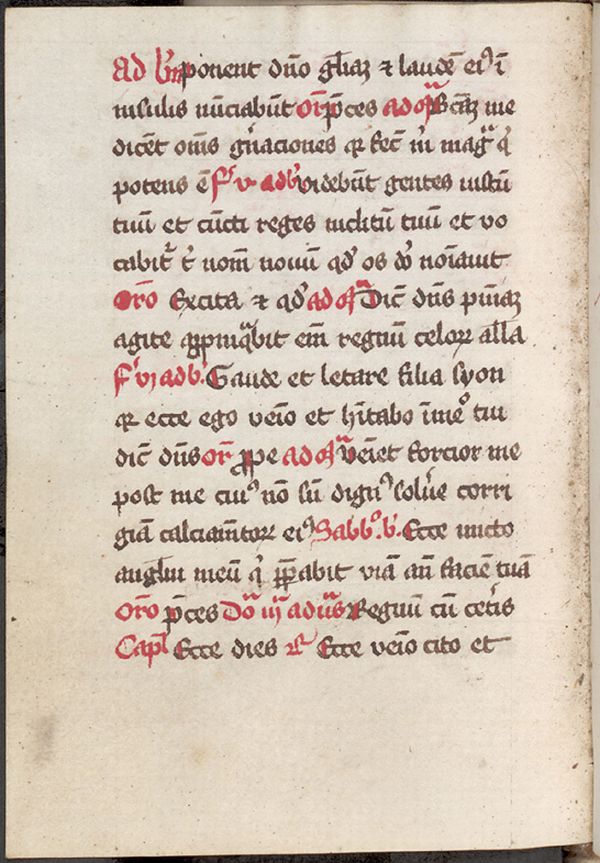 Ad bn̄ponent dn̄o gl̄iaꝫ ⁊ laudē eiꝰ ī
insulis nūciabūt or̄ p̄ces ad mͣ Bt̄aꝫ me
dicēt om̄s gn̄aciones qꝛ fec̄ m̄ magͣ qͥ
potens ē Fͬ v ad bͨ videbūt gentes iustū
tuū et cūcti reges inclitū tuū et vo
cabitͬ tͥ nom̄ nouū qd̓ os dn̄i noīauit
Or̄o Excita ⁊ qd̓ ad mͣ Dic̄ dn̄s pn̄iaꝫ
agite apꝓpinqͣbit em̄ regnū celoꝝ all̄a
Fͬ vj ad bͨ Gaude et letare filia syon
qꝛ ecce ego venīo et hītabo ī meͦ tui
dic̄ dn̄s or̄ ꝓpe ad mͣ veīet forcior me
post me cuiꝰ nō sū dignꝰ solu̓e corri
giā calciam̄toꝝ eiꝰ Sabbͦ. bͨ. Ecce mitto
angl̄m meū qͥ p̄ꝑabit viā an̄ faciē tuā
Or̄o p̄ces Dͣo iij ad vͣs Regnū cū cet̓is
Capl̄ Ecce dies ℟ Ecce venīo cito et